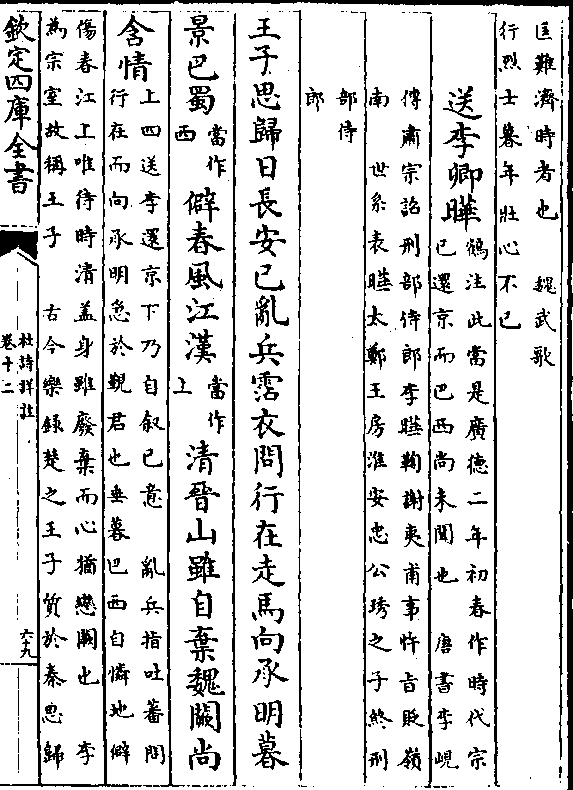 匡難濟時者也　魏武歌
行烈士暮年壯心不已
送李卿曄
鶴注此當是廣德二年初春作時代宗
已還京而巴西尚未聞也　唐書李峴
傳肅宗詔刑部侍郎李曄鞫謝夷甫事忤旨貶嶺
南　世系表曄太鄭王房淮安忠公琇之子終刑
部侍
郎
王子思歸日長安已亂兵霑衣問行在走馬向承明暮
景巴蜀
當作
西
僻春風江漢
當作
上
清晉山雖自棄魏闕尚
含情
上四送李還京下乃自叙已意　亂兵指吐蕃問
行在而向承明急於覲君也垂暮巴西自憐地僻
傷春江上唯待時清盖身雖廢棄而心猶戀闕也　李
為宗室故稱王子　古今樂録楚之王子質於秦思歸
欽定四庫全書
杜詩詳註
卷十二
六九